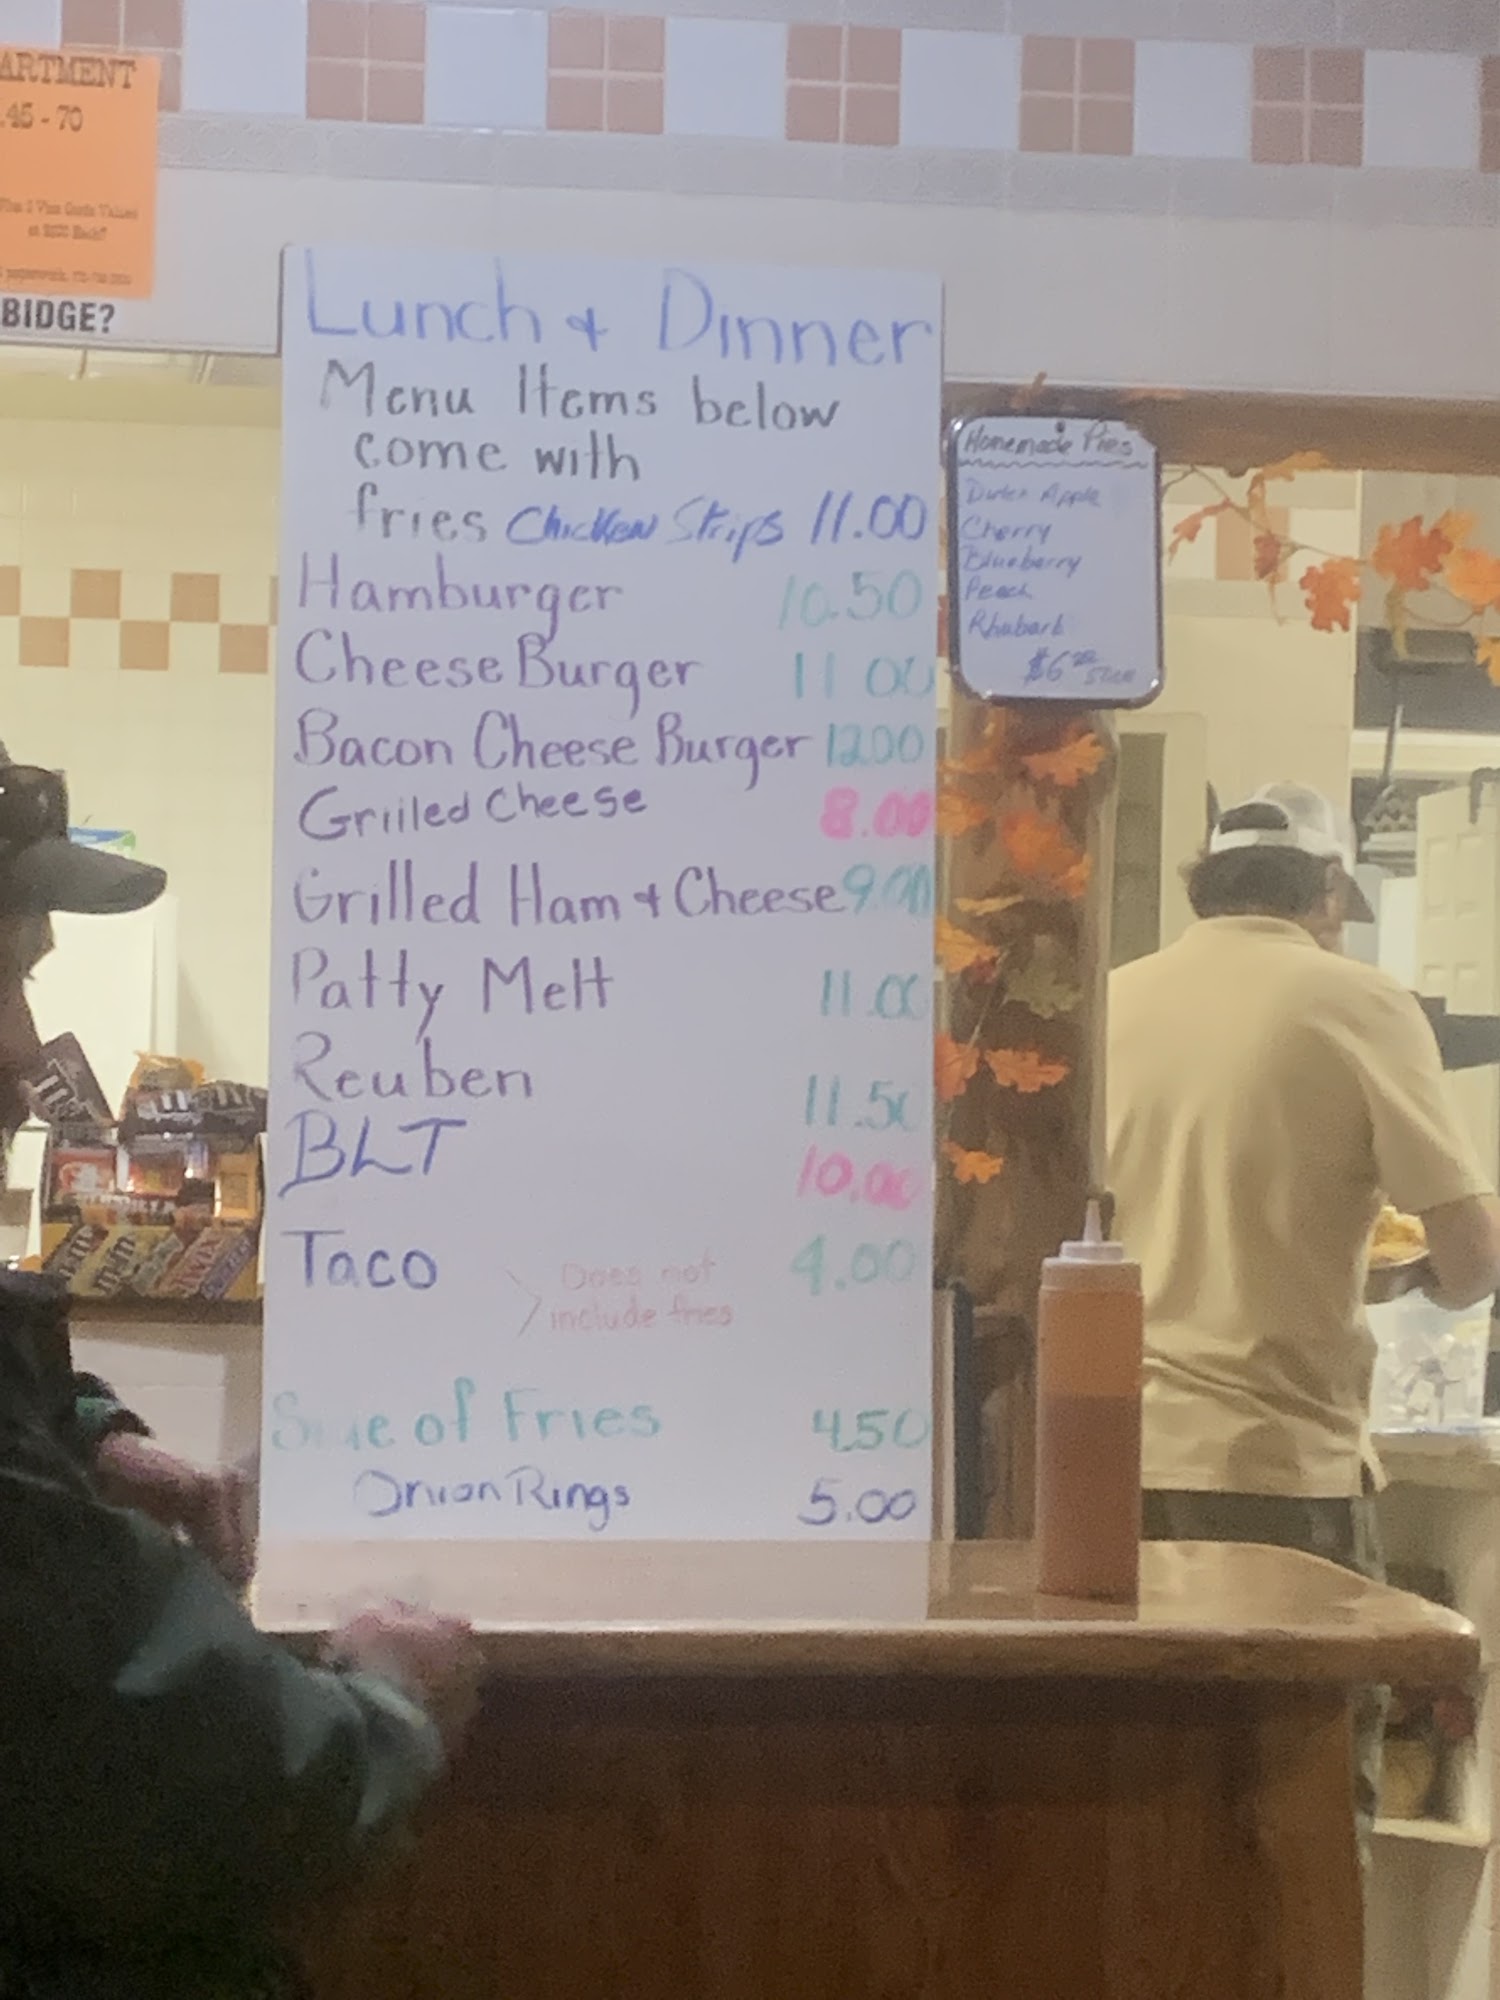 ARTMENT
.45 - 70
BIDGE?
Lunch & Dinner
Menu Items below
come with
fries Chicken Strips 11.00
Hamburger 10.50
Cheese Burger 11 00
Bacon Cheese Burger 12.00
Grilled Cheese 8.00
Grilled Ham & Cheese 9.00
Patty Melt 11.00
Reuben 11.50
BLT 10.00
Taco 4.00
Does not
include fries
Side of Fries 4.50
Onion Rings 5.00
Homemade Pies
Dutch Apple
Cherry
Blueberry
Peach
Rhubarb
$6.00 Slice
m&m
TWIX